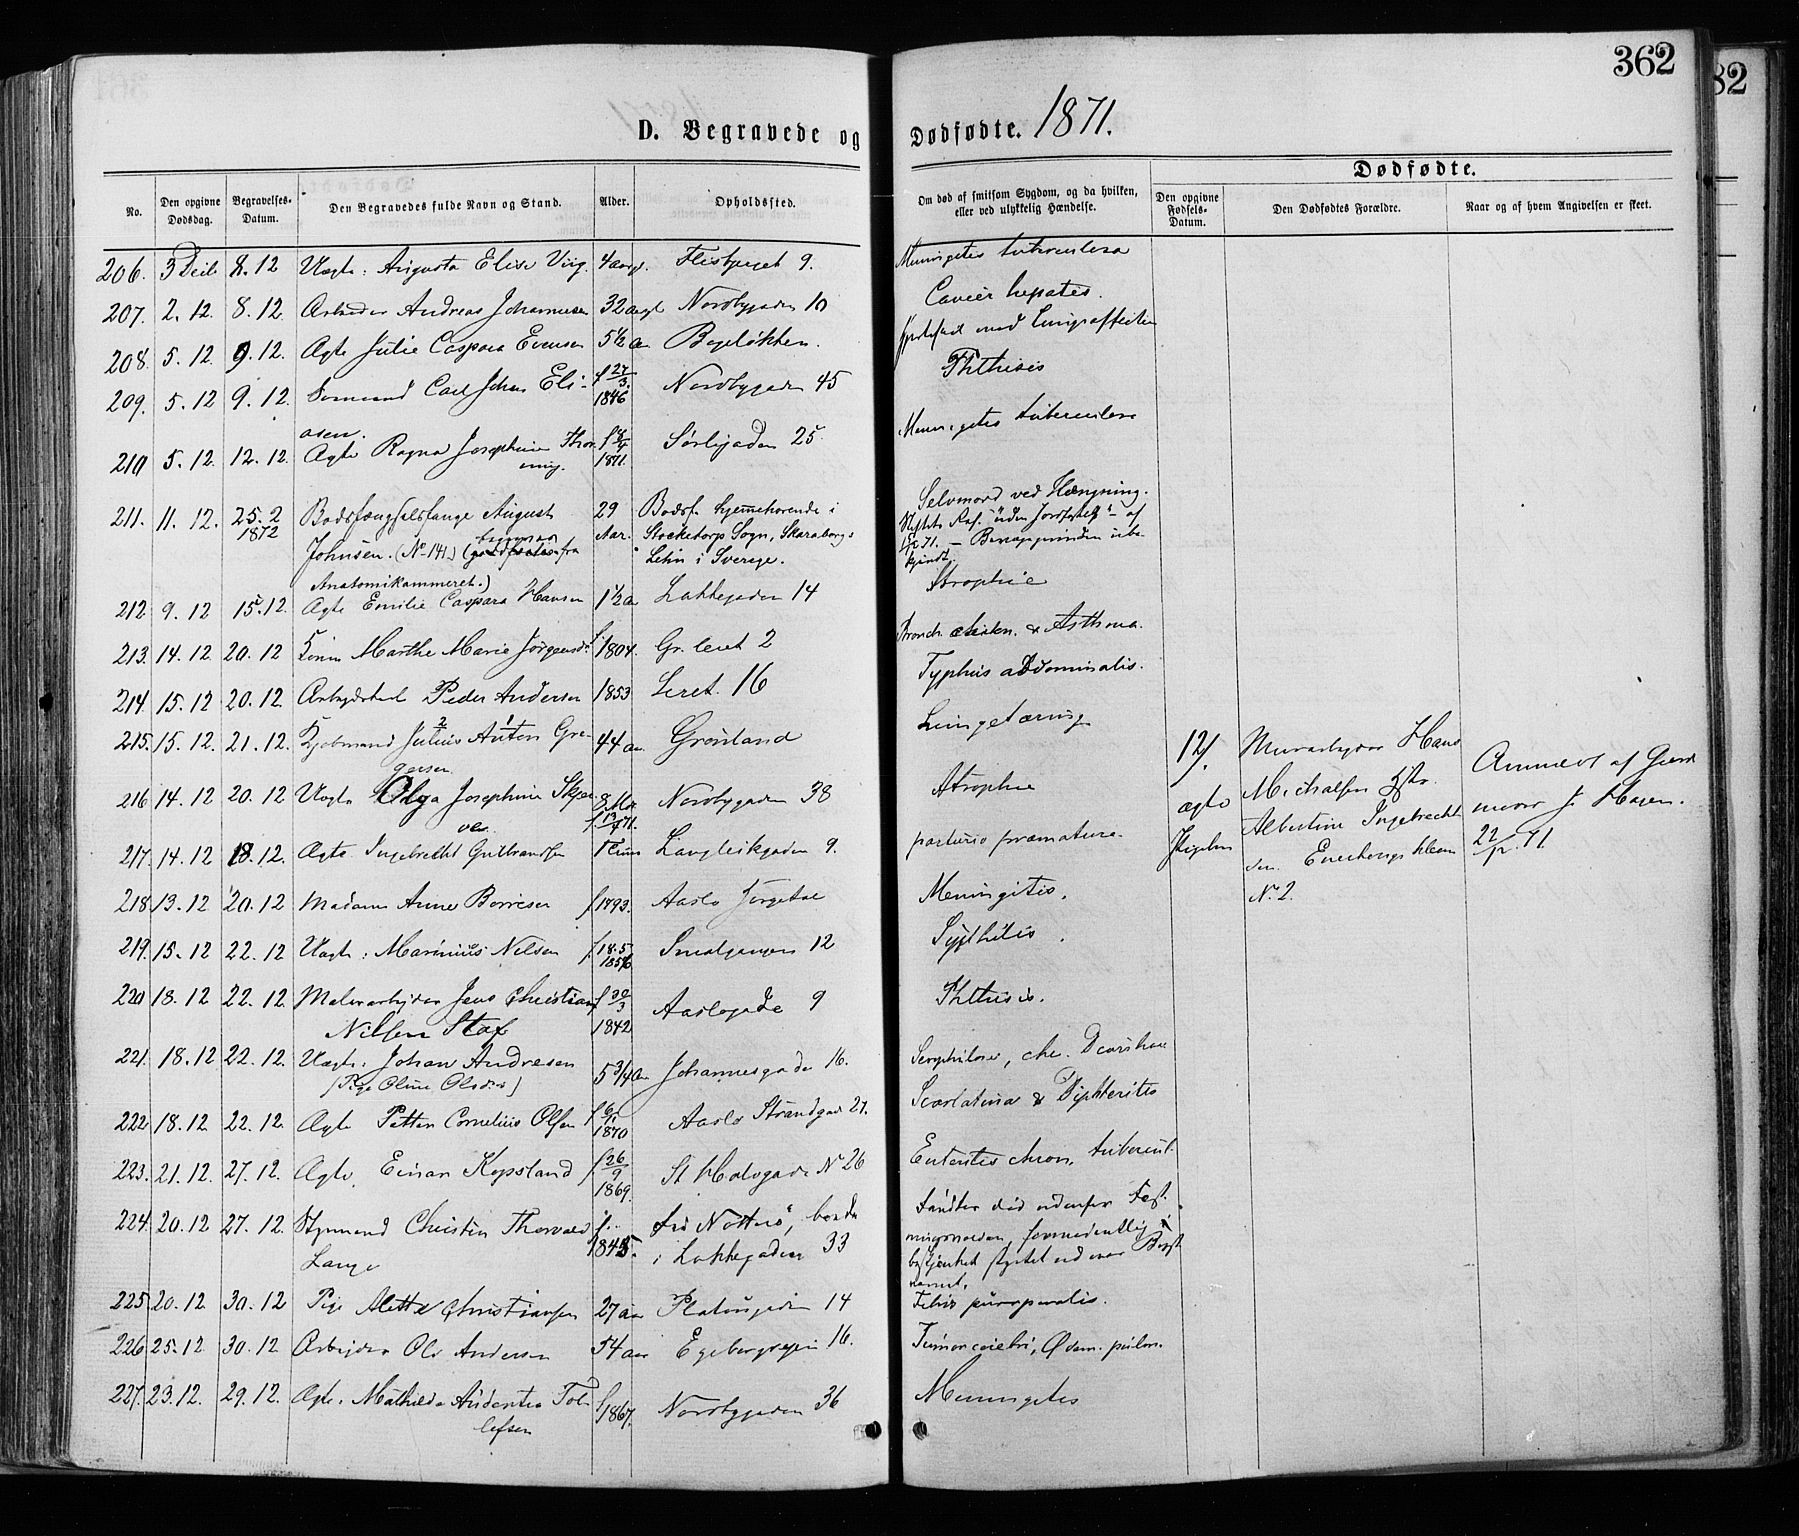 362
82
D. Begravede og Dødfødte. 1871.
Dødfødte.
No.
Den opgivne Dødsdag.
Begravelses-Datum.
Den Begravedes fulde Navn og Stand.
Alder.
Opholdssted.
Om død af smitsom Sygdom, og da hvilken, eller ved ulykkelig Hændelse.
Den opgivne Fødsels-Datum.
Den Dødfødtes Forældre.
Naar og af hvem Angivelsen er skeet.
206. 8.12 Uægte: Augusta Elise 9. Meningites tuberculosa
207. 2.12 8.12 Arbeider Andreas Johannesen 32 Nordbygaden 10
208. 5.12 9.12. Ægte Julie Caspara Evensen 5 1/2 Bøgeløkken.
209. 5.12 9.12. Carl Johan Eli- f 27/3 1846 Nordbygaden 45 Phthisis
asen.
210 5.12. 12.12. Ægte Ragna Josephine Thor- 1871. Sørbygaden 25. Meningites tuberculosa
ning.
211. 11.12. 25.2 1872 Bodsfængselsfange August 29 Aar. Bodsf. hjemmehørende i Selvmord ved Hængning.
Johnsen. (No 141.) fra Sogn, Skaraborgs
Anatomikammeret.) Lehn i Sverige.
212. 9.12 15.12. Ægte Emilie Caspara Hansen 1 1/2 a Lakkegaden 14 Atrophie
213. 14.12. 20.12 Marthe Marie Jørgensd. 1804. Gr. leret 2 & Asthma.
214. 15.12 20.12. Peder Andersen 1853 Leret. 16 Typhus abdominalis.
215. 15.12. 21.12. Kjøbmand Julius Anton Gre- 44 aar Grønland Lungetæring
gersen
216 14.12 20.12 Uægte Olga Josephine 8 Mdr Nordbygaden 38 Atrophie
217. 14.12 18.12. Ægte Ingebrecht Gulbrandsen Langleikgaden 9. partus præmatura.
12/. ægte Pigebarn
Murarbeider Hans
Michalsen
Albertine Ingebrecht
No 2.
Anmeldt af Jord-
moder J. Hagen.
22/12. 71.
218 13.12 20.12 Madame Anne Børresen f 1793. Aaslo Meningitis.
219. 15.12 22.12 Uægte: Marinius Nilsen f. 18.5 Smalgangen 12 Syphilis.
220 18.12 22.12 Malerarbeider Jens Christian f 30/3 1842 Aaslogade 9 Phthisis.
Nilsen
221. 18.12 22.12. Uægte: Johan Andresen 5 3/4 Johannesgade 16.
(Pige Oline Olsdr)
222 18.12 22.12. Ægte Petter Cornelius Olsen f 6/1 1870 Aaslo Strandgade 21. Scarlatina & Diphterites
223. 21.12. 27.12. Ægte Einar Kopsland f 26/9 1869. St Halvgade No 26 Enterites chron. tubercul.
224. 20.12 27.12. Styrmand Christen Thorvald f. 1845. Fra Nøtterø, boede Fandtes død udenfor Fæst-
Lange i Lakkegaden 33 formodentlig i
225 20.12 30.12 Pige Alette Christiansen 27 aar Platougaden 14 Febris puerperalis.
226 25.12 30.12. Arbeider Ole Andersen 54 aar Egebergveien 16. Tumor cerebri, Ødem. pulm.
227. 23.12. 29.12. Ægte. Mathilde Andentia Tol- f 1867. Nordbygaden 36 Meningites
lefsen